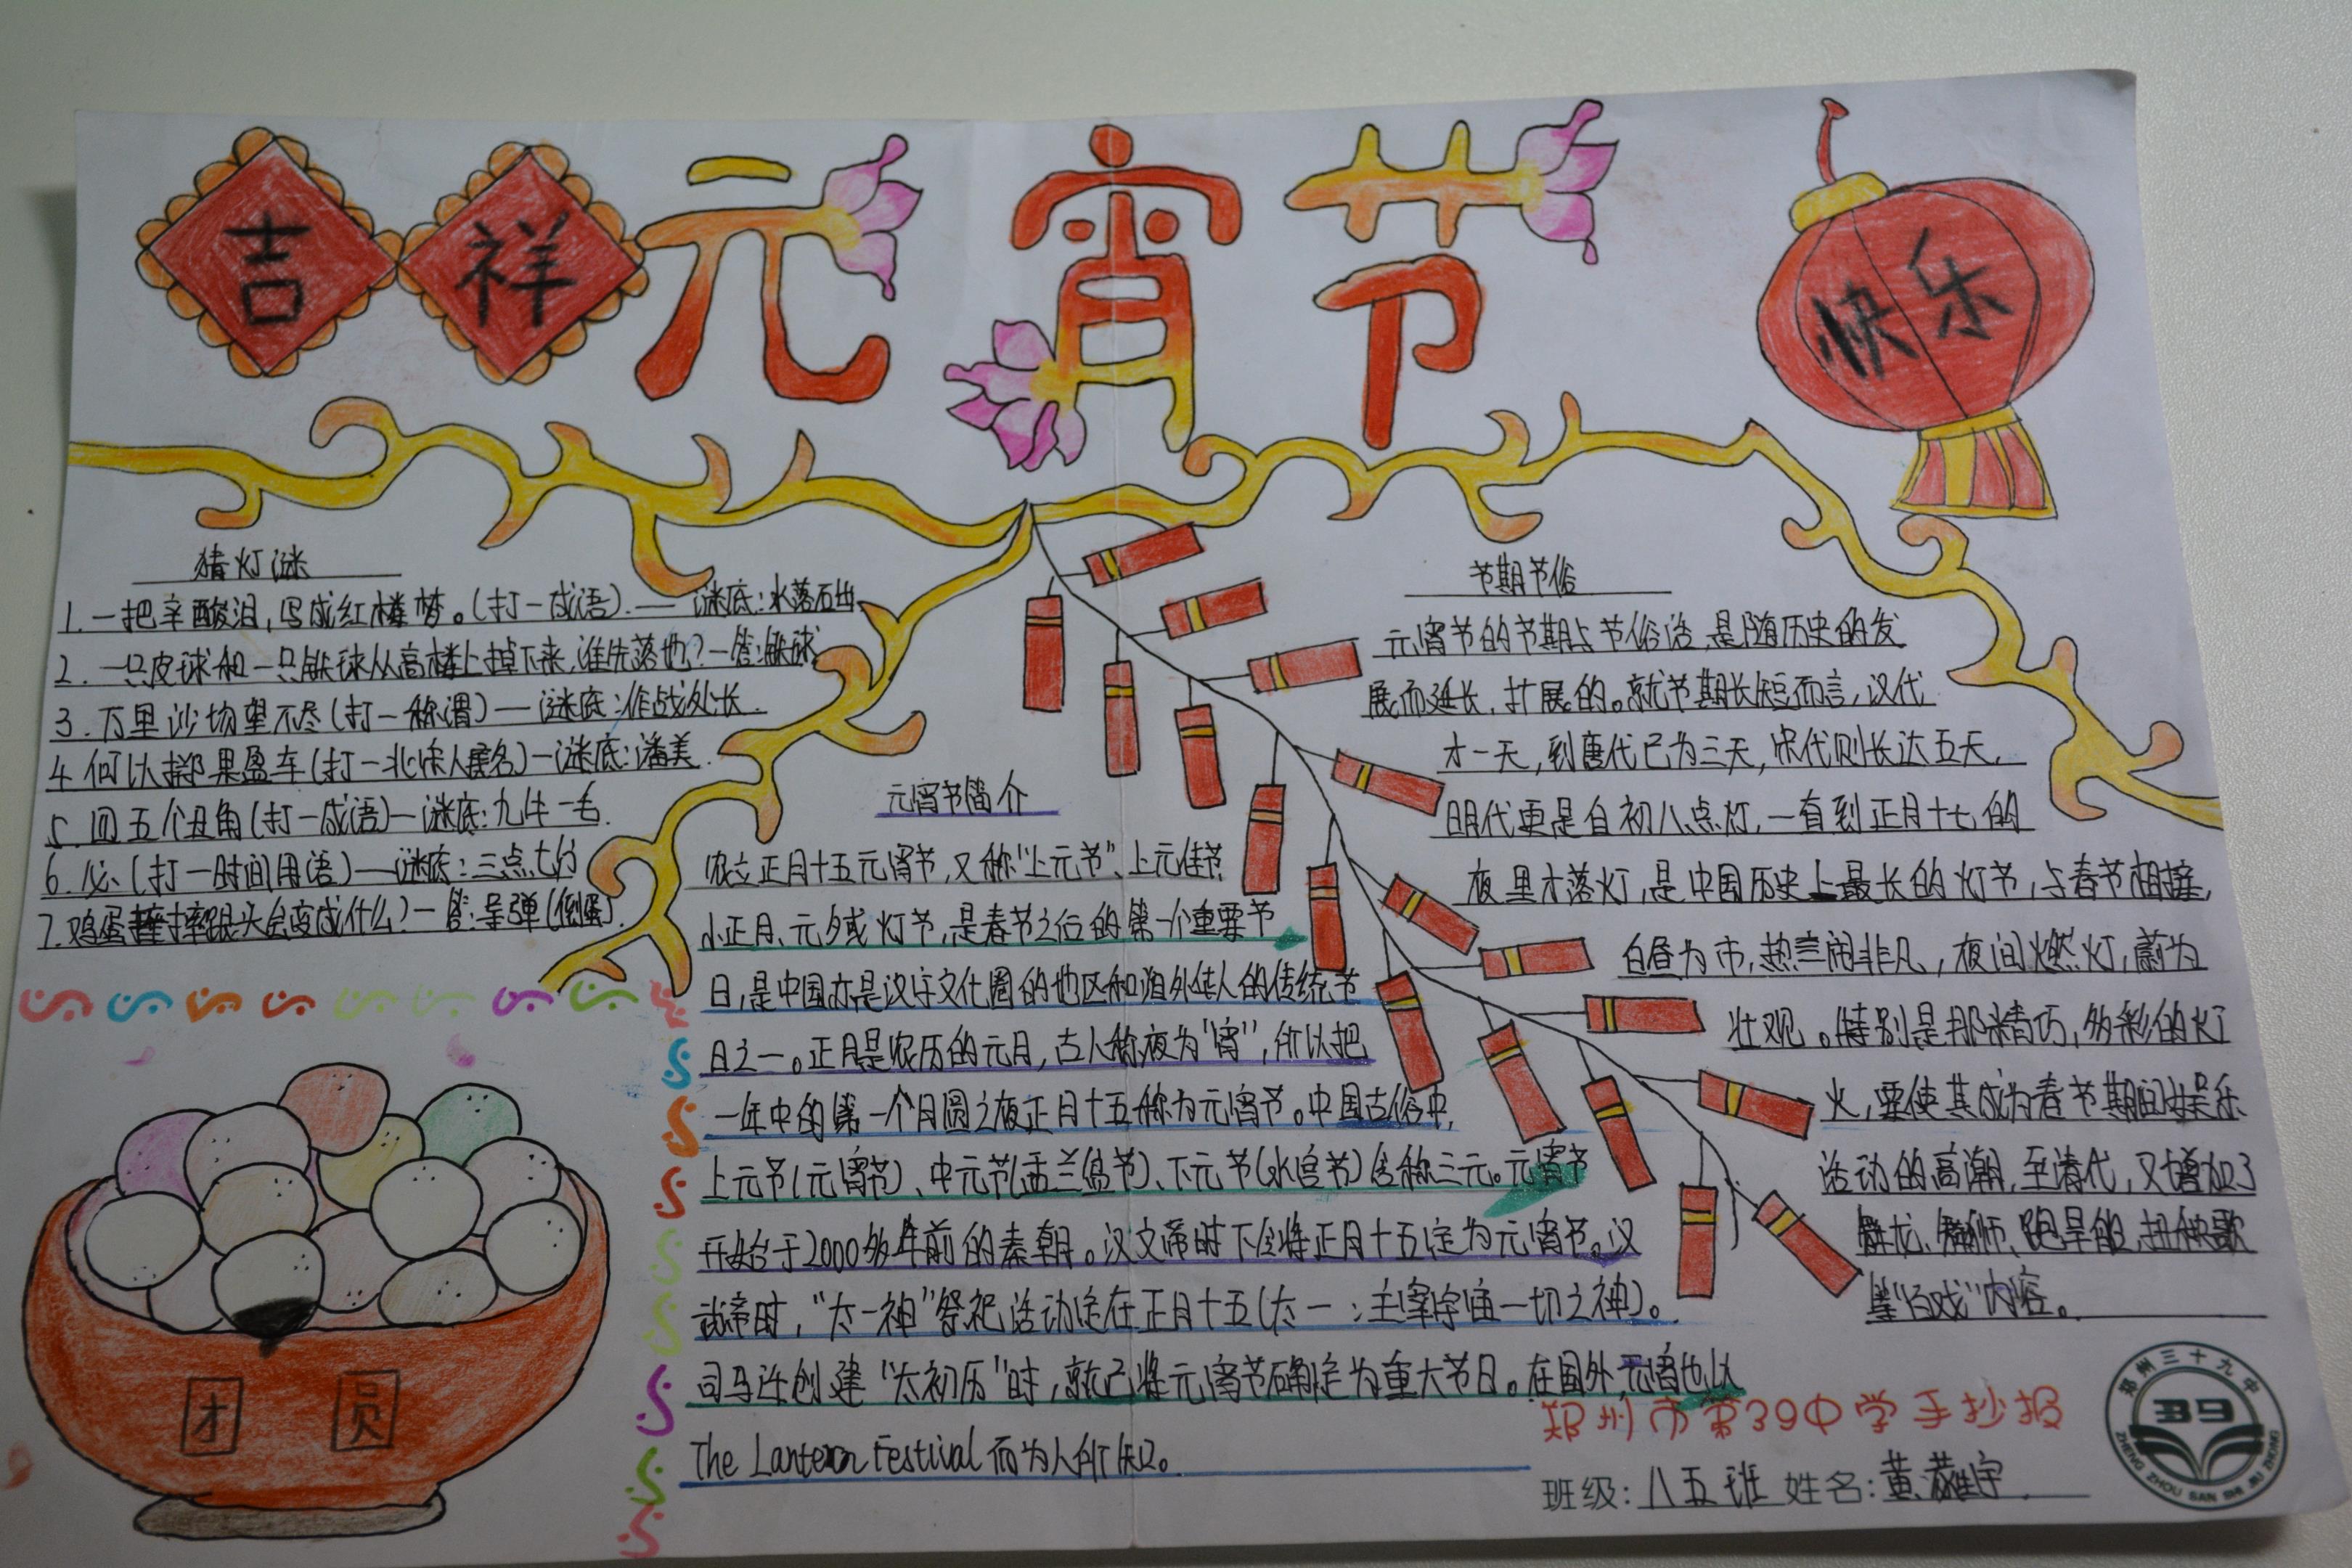 吉祥元宵节快乐
猜灯谜
1.一把辛酸泪,写成红楼梦。(打一成语).—谜底:水落石出
2.一只皮球和一只铁球从高楼上掉下来,谁先落地?—答:铁球
3.万里沙场望不尽(打一称谓)—谜底:作战处长.
4.何以掷果盈车(打一北宋人名)—谜底:潘美.
5.四五个丑角(打一成语)—谜底:九牛一毛.
6.必(打一时间用语)—谜底:三点七分
7.鸡蛋摔跟头会变成什么?—答:导弹(倒蛋).
元宵节简介
农立正月十五元宵节,又称“上元节”、上元佳节
小正月、元夕或灯节,是春节之后的第一个重要节
日,是中国亦是汉字文化圈的地区和海外华人的传统节
日之一。正月是农历的元月,古人称夜为“宵”,所以把
一年中的第一个月圆之夜正月十五称为元宵节。中国古俗中,
上元节(元宵节)、中元节(盂兰盆节)、下元节(水官节)合称三元。元宵节
开始于2000多年前的秦朝。汉文帝时下令将正月十五定为元宵节。汉
武帝时,“太一神”祭祀活动定在正月十五(太一:主宰宇宙一切之神)。
司马迁创建“太初历”时,就已将元宵节确定为重大节日。在国外,元宵也以
The Lantern Festival 而为人所知。
节期节俗
元宵节的节期与节俗活,是随历史的发
展而延长,扩展的。就节期长短而言,汉代
才一天,到唐代已为三天,宋代则长达五天,
明代更是自初八点灯,一直到正月十七的
夜里才落灯,是中国历史上最长的灯节,与春节相接,
白昼为市,热闹非凡,夜间燃灯,蔚为
壮观。特别是那精巧,多彩的灯
火,要使其成为春节期间娱乐
活动的高潮,至清代,又增加了
舞龙、舞狮、跑旱船,扭秧歌
等“百戏”内容。
团 员
郑州市第39中学手抄报
班级:八五班 姓名:黄宇
郑州三十九中
39
ZHENG ZHOU SAN SHI JIU ZHONG